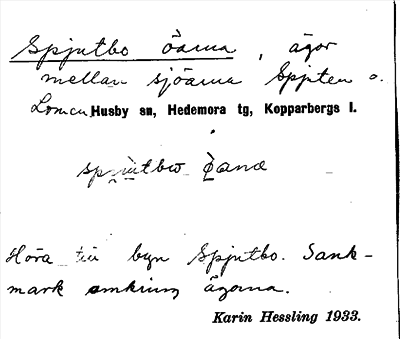 Spjutbo öarna, ägor
mellan sjöarna Spjuten o.
Lomen, Husby sn, Hedemora tg, Kopparbergs l.
Höra till byn Spjutbo. Sank-
mark omkring ägorna.
Karin Hessling 1933.